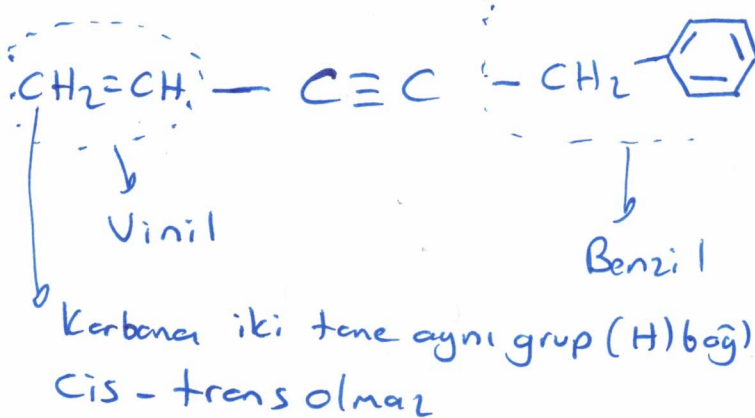 CH₂=CH — C≡C — CH₂
Vinil
Benzil
Karbona iki tane aynı grup (H) bağ)
Cis - trans olmaz